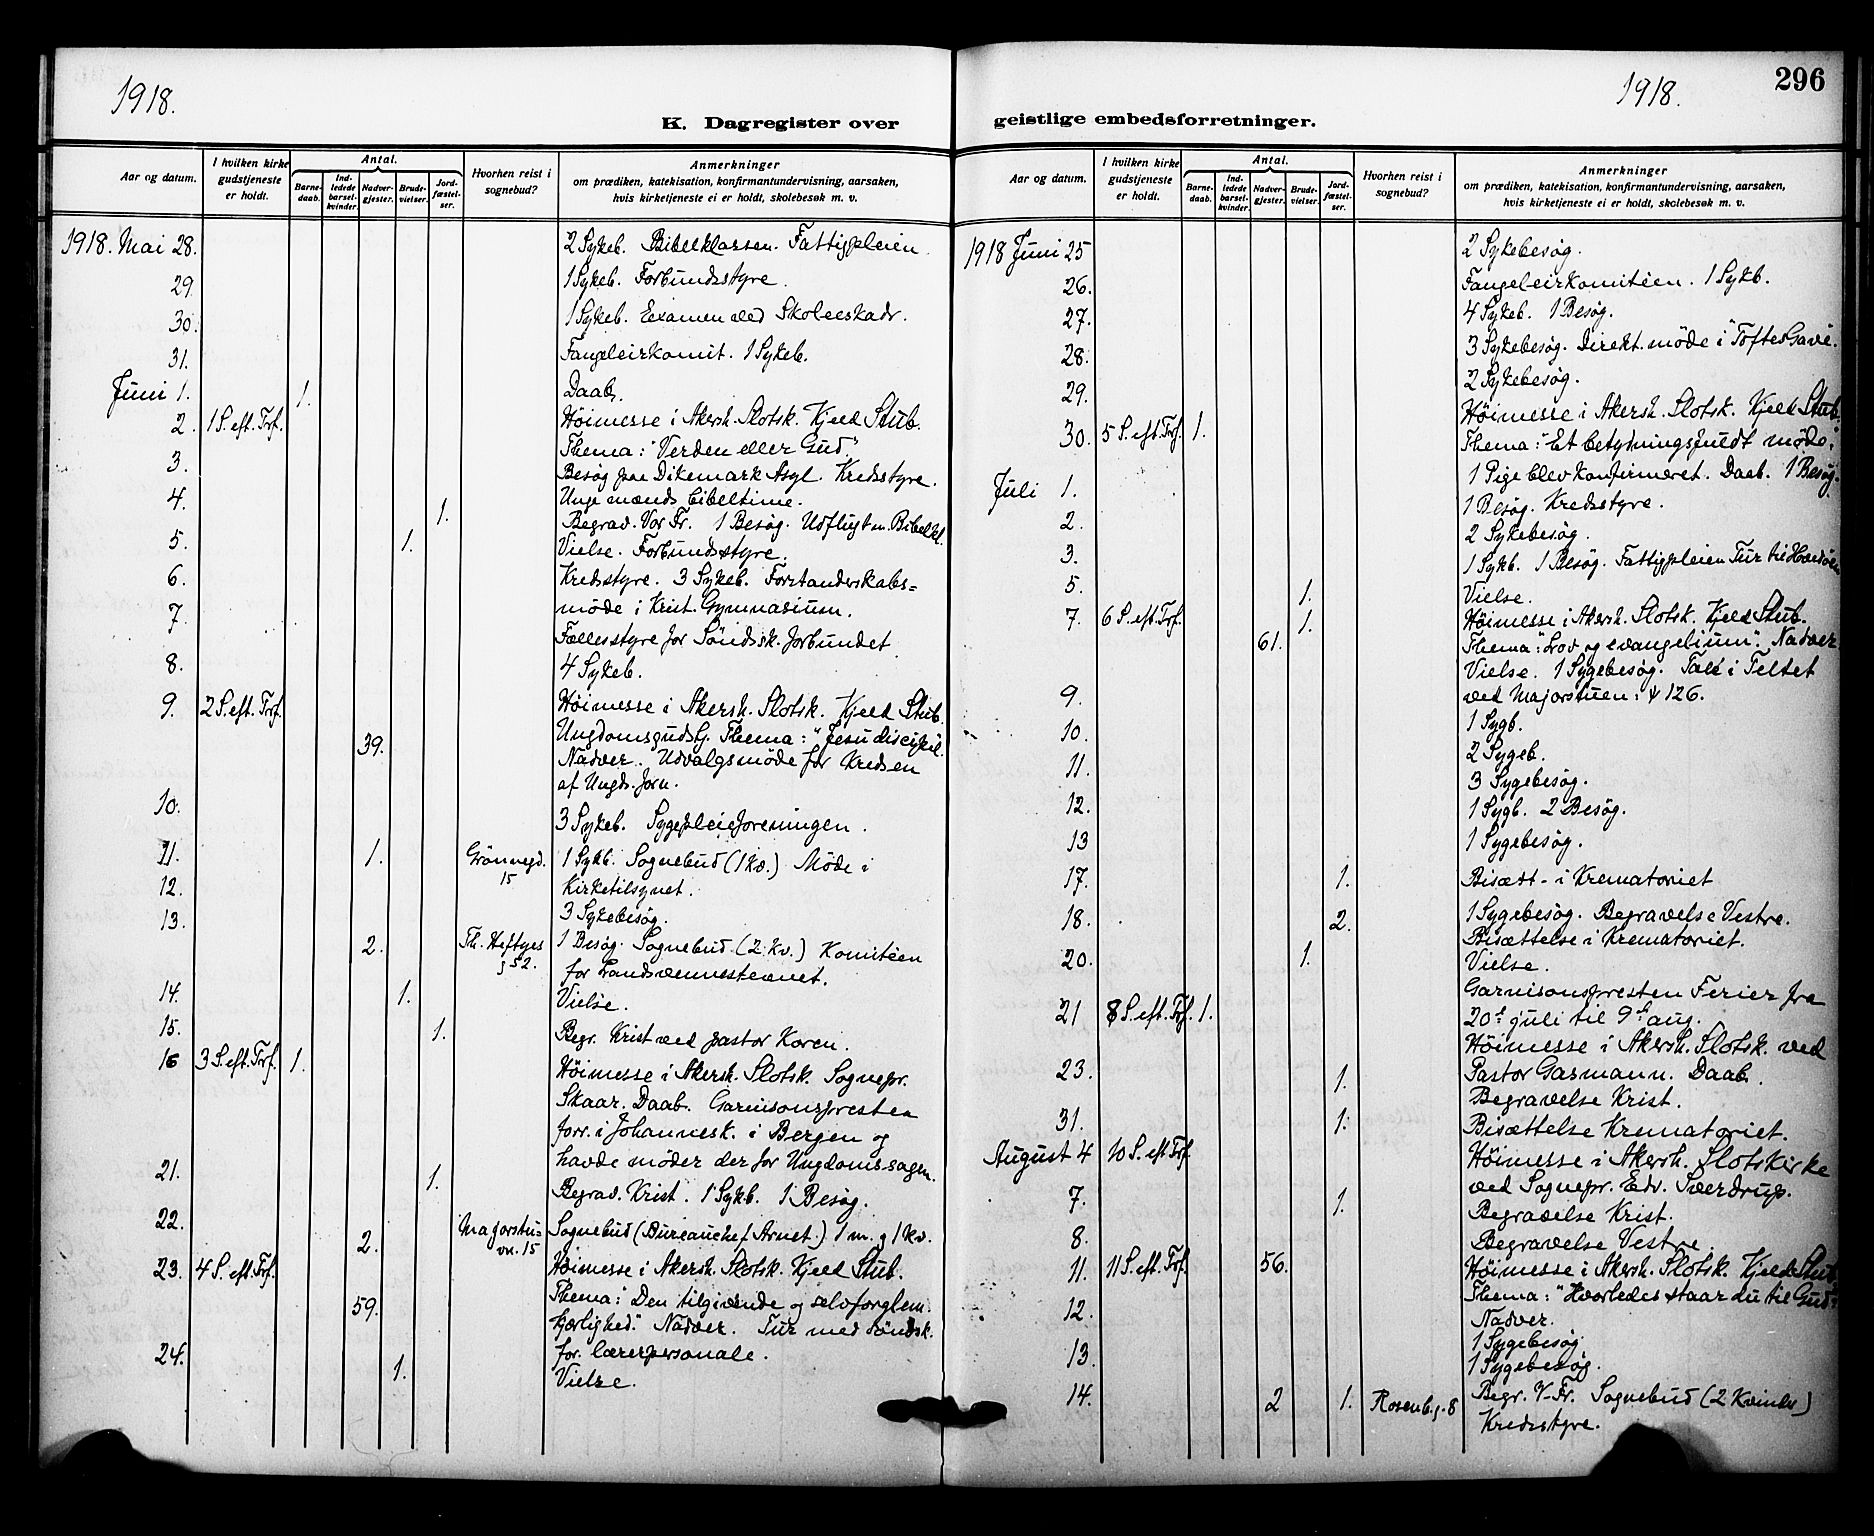 1918.
K. Dagregister over
Aar og datum. I hvilken kirke gudstjeneste er holdt. Antal. Barne-daab. Ind-ledede barsel-kvinder. Nadver-gjester. Brude-vielser. Jord-fæstel-ser. Hvorhen reist i sognebud? Anmerkninger
om prædiken, katekisation, konfirmantundervisning, aarsaken,
hvis kirketjeneste ei er holdt, skolebesøk m. v.
1918. Mai 28. 2 Sykeb. Bibelklassen. Fattigpleien.
29. 1 Sykeb. Forbundsstyre.
30. 1 Sykeb. Examen ved Skoleeskadr.
31. Fangeleirkomit. 1 Sykeb.
Juni 1. 1. Daab.
2. 1 S. eft. Trf. Höimesse i Akersh. Slotsk. Kjeld Stub.
Thema: "Verden eller Gud"
3. Besøg paa Dikemark Asyl. Kredsstyre.
Unge mænds bibeltime.
4. 1. Begrav. Vor Fr. 1 Besøg. Udflugt m. Bibelkl.
5. 1. Vielse. Forbundsstyre.
6. Kredsstyre. 3 Sykeb. Forstanderskabs=
möde i Krist. Gymnasium.
7. Fællesstyre for Söndsk. forbundet
8. 4 Sykeb.
9. 2 S. eft. Trf. Höimesse i Akersh. Slotsk. Kjeld Stub.
Ungdomsgudstj. Thema: "Jesu discipel.
39. Nadver. Udvalgsmöde for Kredsen
af Ungds. forn.
10. 3 Sykeb. Sygepleieforeningen.
11. 1. Grönnegd. 15 1 Sykb. Sognebud (1 kv.) Möde i
12. Kirketilsynet.
13. 3 Sykebesøg.
2. Th. Heftyes g 52. 1 Besøg. Sognebud. (2 Kv.) Komitéen
for Landsvennestevnet.
14. 1. Vielse.
15. 1. Begr. Krist ved pastor Koren.
16 3 S. eft. Trf. 1. Höimesse i Akersh. Slotsk. Sognepr.
Skaar. Daab. Garnisonspresten
forr. i Johannesk. i Bergen og
havde möder der for Ungdomssagen.
21. 1. Begrav. Krist. 1 Sykb. 1 Besøg.
22. 2. Majorstu-vn. 15 Sognebud (Bureauchef Arnet.) 1 m. g 1 kv.
23. 4 S. eft. Trf. Höimesse i Akersh. Slotsk. Kjeld Stub.
59. Thema: "Den tilgivende og selvforglem.
kjærlighed." Nadver. Tur med Söndsk.
24. for. lærerpersonale.
1. Vielse.
1918. 296
geistlige embedsforretninger.
Aar og datum. I hvilken kirke gudstjeneste er holdt. Antal. Barne-daab. Ind-ledede barsel-kvinder. Nadver-gjester. Brude-vielser. Jord-fæstel-ser. Hvorhen reist i sognebud? Anmerkninger
om prædiken, katekisation, konfirmantundervisning, aarsaken,
hvis kirketjeneste ei er holdt, skolebesøk m. v.
1918 Juni 25 2 Sykebesøg.
26. Fangeleirkomitéen. 1 Sykb.
27. 4 Sykeb. 1 Besøg.
28. 3 Sykebesøg. Direkt. möde i "Toftes Gave."
29. 2 Sykebesøg.
30. 5 S. eft. Trf. 1. Höimesse i Akersh. Slotsk. Kjeld Stub.
Thema: "Et betydningsfuldt möde."
1 Pige blev konfirmeret. Daab. 1 Besøg.
Juli 1. 1 Besøg. Kredsstyre.
2. 2 Sykebesøg.
3. 1 Sykb. 1 Besøg. Fattigpleien Tur til Hovedöen
5. 1. Vielse.
7. 6 S. eft. Trf. 1. Höimesse i Akersh. Slotsk. Kjeld Stub.
61. Thema: "Lov og evangelium". Nadver
Vielse. 1 Sygebesøg. Tale i Teltet
9. ved Majorstuen: ψ 126.
10. 1 Sygb.
2 Sygeb.
11. 3 Sygebesøg.
12. 1 Sygb. 2 Besøg.
13 1 Sygebesøg.
17. 1. Bisætt- i Krematoriet
18. 2. 1 Sygebesøg. Begravelse Vestre.
Bisættelse i Krematoriet.
20. 1. Vielse.
Garnisonspresten Ferier fra
21 8 S. eft. Trf. 1. 20de juli til 9de aug.
Höimesse i Akersh. Slotsk. ved
23. 1. Pastor Gasmann. Daab.
Begravelse Krist.
31. 1. Bisættelse Krematoriet.
August 4 10 S. eft Trf. Höimesse i Akersh. Slotskirke
ved Sognepr. Edv. Sverdrup.
7. 1. Begravelse Krist.
8. Begravelse Vestre.
11. 11 S. eft. Trf. 56. Höimesse i Akersh. Slotsk. Kjeld Stub
12. Thema: "Hvorledes staar du til Gud?"
Nadver.
1 Sygebesøg
13. 1 Sygebesøg.
14. 2 1. Rosenb.g. 8 Begr. V-Fr. Sognebud (2 Kvinder)
Kredsstyre.